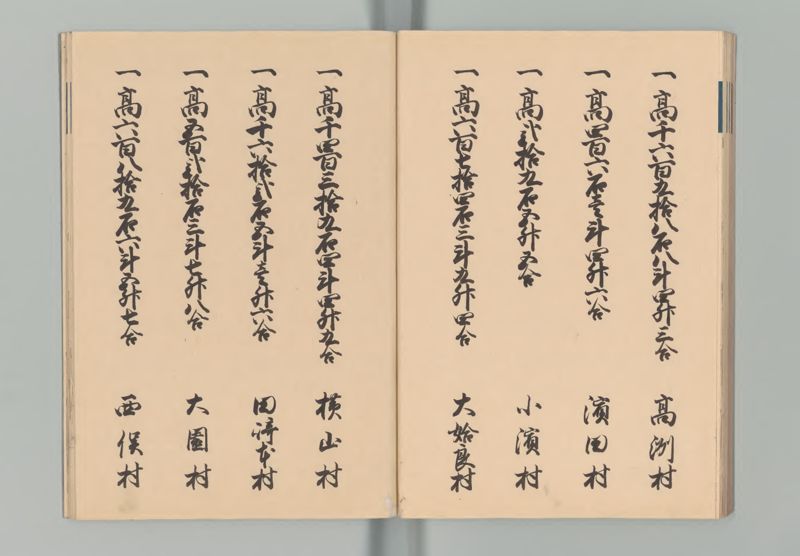 一高千六百五拾八石八斗四升三合 高洲村
一高四百六石壱斗四升六合 濱田村
一高弐拾五石五升五合 小濱村
一高六百七拾四石三斗五升四合 大姶良村
一高千四百三拾五石四斗四升五合 横山村
一高千六拾弐石五斗壱升六合 田崎村
一高五百弐拾石三斗七升八合 大園村
一高六百八拾五石六斗五升七合 西俣村